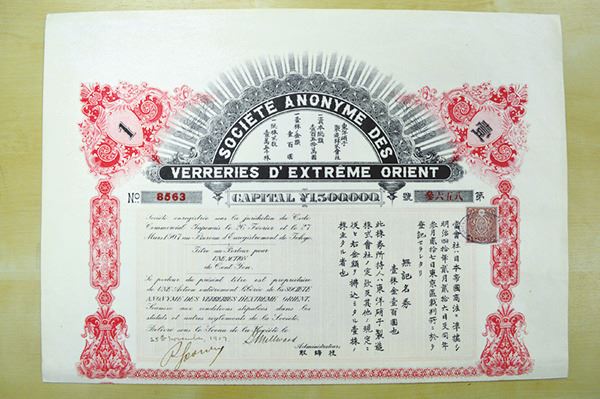 1
壹
SOCIÉTÉ ANONYME DES
VERRERIES D'EXTRÊME ORIENT
東洋硝子
製造株式會社
一資本総額
壹百五拾萬圓
一壹株金額
壹百圓
一総株式数
壹萬五千株
No 8563
CAPITAL ¥1,500,000
第八五六参號
Société enregistrée sous la juridiction du Code
Commercial Japonais le 26 Février et le 27
Mars 1907 au Bureau d'Enregistrement de Tokyo.
Titre au Porteur pour
UNE ACTION
de Cent Yen.
Le porteur du présent titre est propriétaire
de UNE Action entièrement libérée de la SOCIÉTÉ
ANONYME DES VERRERIES D'EXTRÊME ORIENT,
Soumise aux conditions stipulées dans les
statuts et autres règlements de la Société.
Délivré sous le Sceau de la Société le
25th November 1907
Administrateurs
取締役
當會社ハ日本帝國商法ニ準據シ
明治四拾年貳月貳拾六日及同年
参月貳拾七日東京區裁判所ニ於テ
登記セラレタリ
無記名券
壹株金壹百圓也
此株券所持人ハ東洋硝子製造
株式會社ノ定款及其他ノ規定ニ
從ヒ右金額ヲ拂込ミタル壹株ノ
株主タル者也